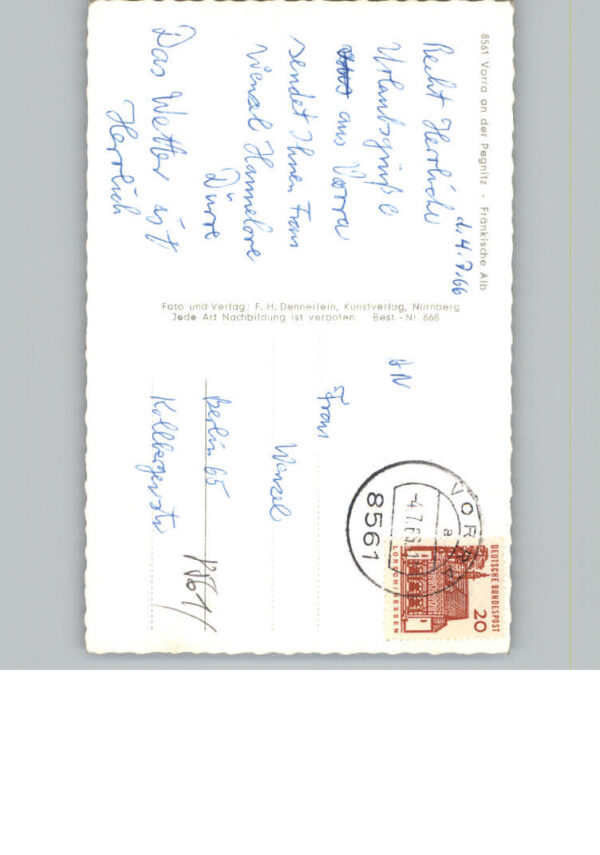 8561 Vorra an der Pegnitz · Fränkische Alb
d. 4.7.66
Recht Herrliche
Urlaubsgrüße
aus Vorra
sendet Ihnen Frau
Wenzel Hannelore
Dürre
Das Wetter ist
Herrlich
Foto und Verlag: F. H. Dennerlein, Kunstverlag, Nürnberg
Jede Art Nachbildung ist verboten. Best.-Nr. 668
AN
Frau
Wenzel
Berlin 65
Kollbergerstr
DEUTSCHE BUNDESPOST
20
LORSCH/HESSEN
8561 VORRA
-4.7.66